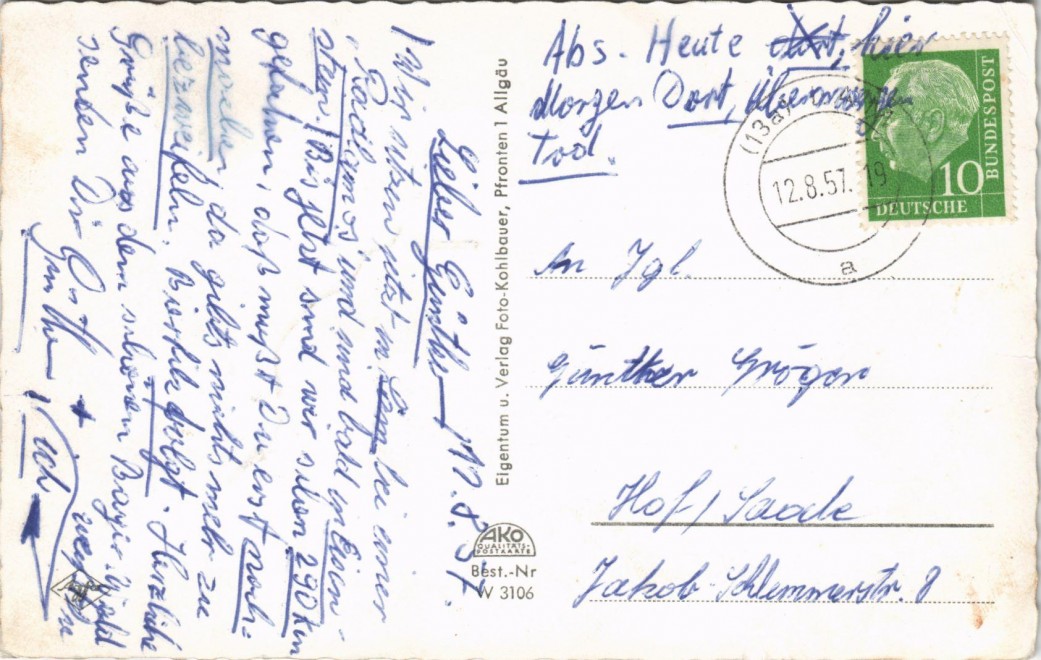 Abs. Heute dort, hier
Morgen Dort, Übermorgen
Tod.
(13a)
12.8.57. 19
a
10
DEUTSCHE
BUNDESPOST
An Jgl.
Günther Gröger
Hof/Saale
Jakob-Schlemmerstr. 8
Eigentum u. Verlag Foto-Kohlbauer, Pfronten 1 Allgäu
AKO
QUALITÄTS-
POSTKARTE
Best.-Nr
W 3106
Lieber Günther 12.8.57.
Wir sitzen jetzt in bei einer
und sind bald in
stein! Bis jetzt sind wir schon 290 km
gefahren, daß mußt Du erst nach=
machen, da gibts nichts mehr zu
bezweifeln. folgt. Herzliche
Grüße aus dem schönen Bayr. Wald
senden Dir
Günther +